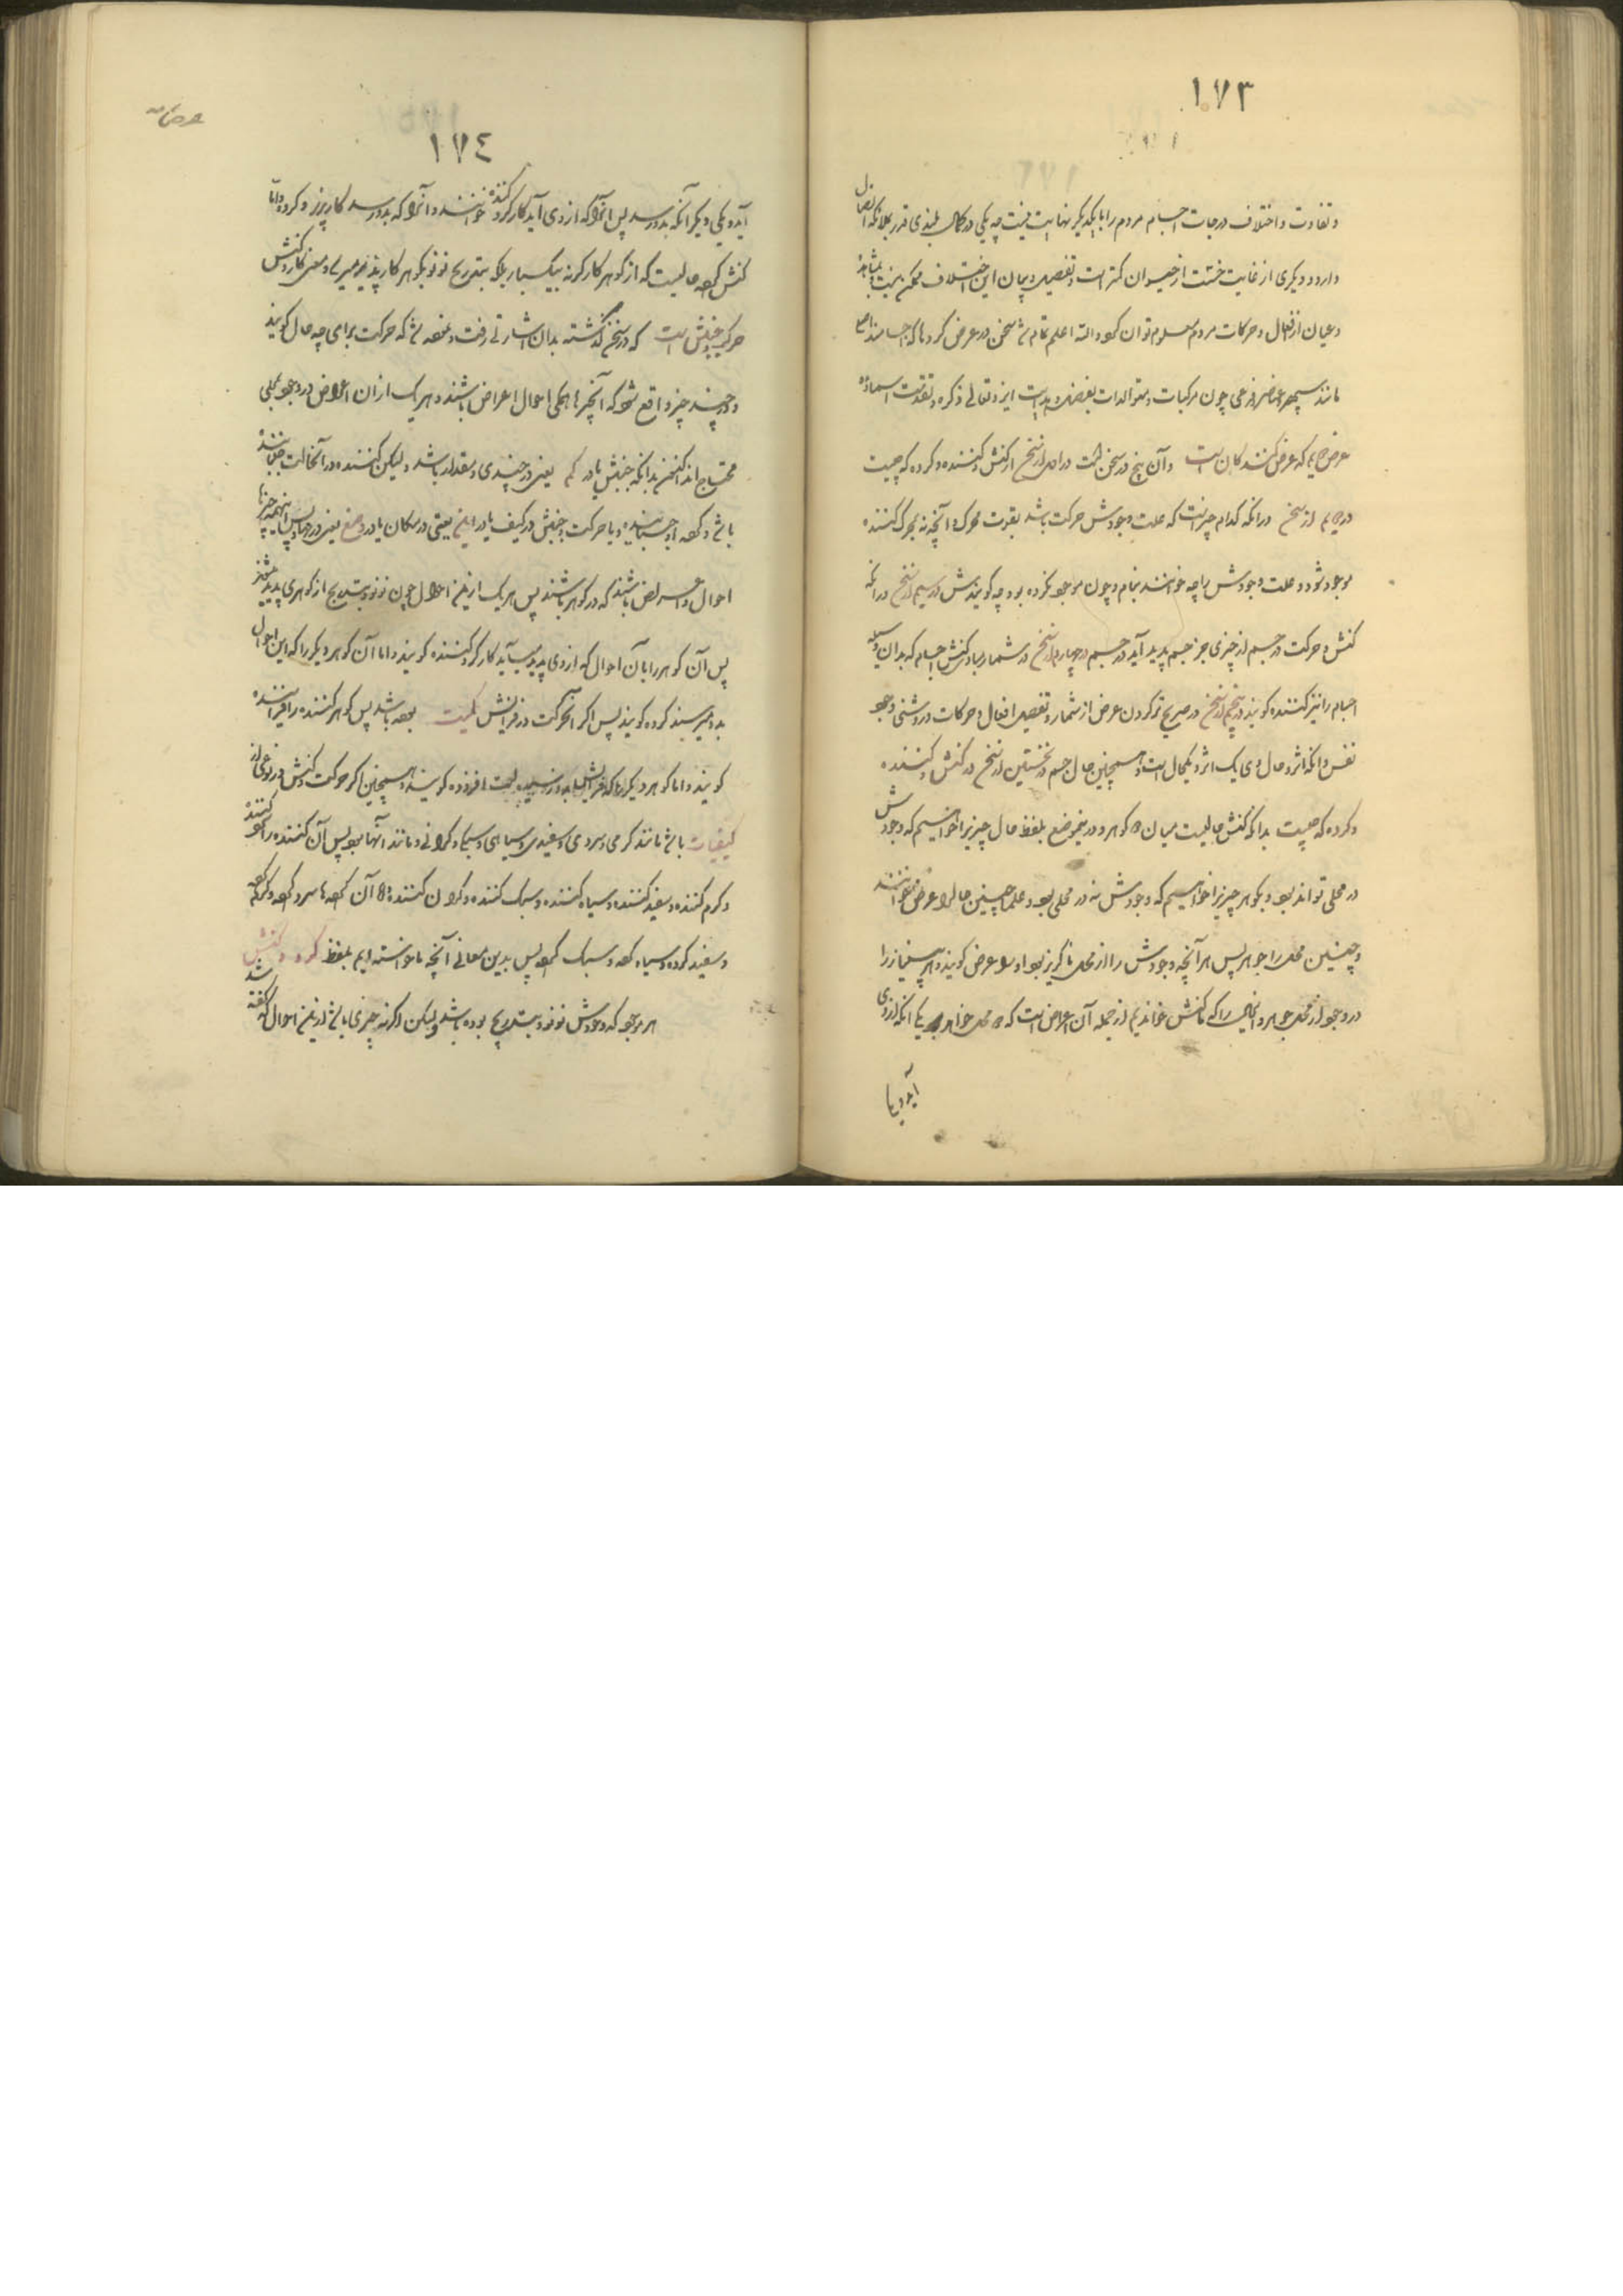 ١٧٣
و تفاوت و اختلاف درجات اجسام مردم را با یکدیگر نهایت نیست چه یکی در کمال بلندی قدر بملائکه اتصال
دارد و دیگری از غایت خسّت از حیوان کمتر است و تفصیل و بیان این اختلاف ممکن نیست و بمشاهده
و عیان از افعال و حرکات مردم معلوم توان کرد والله اعلم تمام شد سخن در عرض کرده‌ا که اجسامند
مانند سپهر و عناصر و فرعی چون مرکبات و متوالدات بفضل و هدایت ایزد تعالی ذکره و تقدست اسماؤه
عرض دویم که عرض کنندکان است و آن پنج در سخن است در اول از سخن از کنش و کننده و کرده که چیست
در دویم از سخن در آنکه کدام چیز است که علت وجودش حرکت باشد بقوت محرک و آنچه نه بحرکت کننده
موجود شود و علت وجودش را چه خوانند بنام و چون موجود نکرده بود چه کویندش در سیم از سخن در آنکه
کنش و حرکت در جسم از چیزی جز جسم پدید آید در جسم در چهارم از سخن در شمار مبادی کنش اجسام که بدان وسیله
اجسام را نیز کننده کویند در پنجم از سخن در صریح تر کردن عرض از شمار و تفصیل افعال و حرکات در روشنی وجود
نفس و آنکه اثر و حال وی یک اثر و یکحال است و همچنین حال جسم در نخستین از سخن در کنش و کننده
و کرده که چیست بدانکه کنش حالیست میان دو کوهر و درینموضع بلفظ حال چیزیرا خواهیم که وجودش
در محلی تواند بود و بکوهر چیزیرا خواهیم که وجودش نه در محلی بود و علما چنین حال را عرض خوانند
و چنین محل را جوهر پس هر آنچه وجودش را از محل ناکریز بود او را عرض کویند و هر چه بی‌نیاز را
در وجود از محل جوهر و اینحال را که ما کنش خواندیم از جمله آن اعراض است که دو محل خواهد یکی آنکه از وی
آید و یا
عرض
١٧٤
آید و یکی دیکر آنکه بدو رسد پس آنرا که از وی آید کارکر و کننده خوانند و آنرا که بدو رسد کارپذیر و کرده و امّا
کنش کرده حالیست که از کوهر کارکر نه بیکبار بلکه بتدریج نو نو بکوهر کارپذیر میرسد و معنی کار و کنش
حرکت و جنبش است که در سخن کذشته بدان اشارتی رفت و نموده شد که حرکت برای چه حال کویند
و در چند چیز واقع شود که آنچیزها همکی احوال و اعراض باشند و هر یک از آن اعراض در وجود بمحلی
محتاج اند اکنون بدانکه جنبش یا در کم یعنی در چندی و مقدار باشد و لیکن کننده در آنحالت
باشد و کرده او و یا حرکت و جنبش در کیف یا در این یعنی در مکان یا در وضع یعنی در نهاد پس اینهمه چیزها
احوال و اعراض باشند که در کوهر باشند پس هر یک ازین احوال چون نو نو بتدریج از کوهری پدید میشوند
پس آن کوهر را با آن احوال که از وی پدید می‌آید کارکر و کننده کویند و اما آن کوهر دیکر را که این احوال
بدو میرسند کرده کویند پس اکر آنحرکت در فزایش کمیت بوده باشد پس کوهر کننده را فزاینده
کویند و اما کوهر دیکر را که فزایش بدو رسیده است افزوده کویند و همچنین اکر حرکت و کنش در نوعی از
کیفیات باشد مانند کرمی و سردی و سفیدی و سیاهی و سبکی و کرانی و مانند آنها بود پس آن کننده را سرد کننده
و کرم کننده و سفید کننده و سیاه کننده و سبک کننده و کران کننده و آن کرده‌ها سرد کرده و کرم کرده
و سفید کرده و سیاه کرده و سبک کرده پس بدین معانی آنچه ما خواسته‌ایم بلفظ کرده و کنش
هر موجود که وجودش نو نو و بتدریج بوده باشد و لیکن اکر نه چیزی باشد ازین احوال که کفته شد